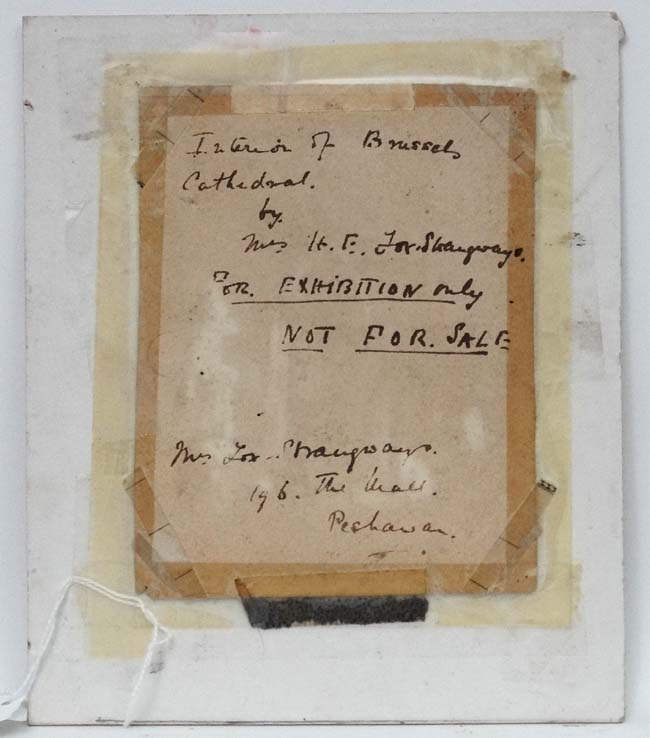 Interior of Brussels
Cathedral.
by.
Mrs H. E. Fox-Strangways.
FOR. EXHIBITION only
NOT FOR. SALE
Mrs Fox-Strangways.
196. The Mall.
Peshawar.